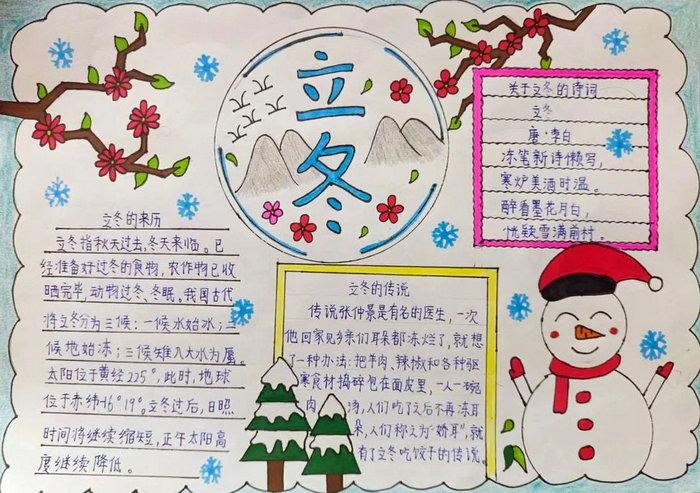 立冬
立冬的来历
立冬指秋天过去,冬天来临。已
经准备好过冬的食物,农作物已收
晒完毕,动物过冬、冬眠。我国古代
将立冬分为三候:一候水始冰;二
候地始冻;三候雉入大水为蜃。
太阳位于黄经225°,此时,地球
位于赤纬-16°19°。立冬过后,日照
时间将继续缩短,正午太阳高
度继续降低。
关于立冬的诗词
立冬
唐·李白
冻笔新诗懒写,
寒炉美酒时温。
醉看墨花月白,
恍疑雪满前村。
立冬的传说
传说张仲景是有名的医生,一次
他回家见乡亲们耳朵都冻烂了,就想
了一种办法:把羊肉、辣椒和各种驱
寒食材捣碎包在面皮里,一人一碗
肉汤,人们吃了之后不再冻耳
朵,人们称之为“娇耳”,就
有了立冬吃饺子的传说。